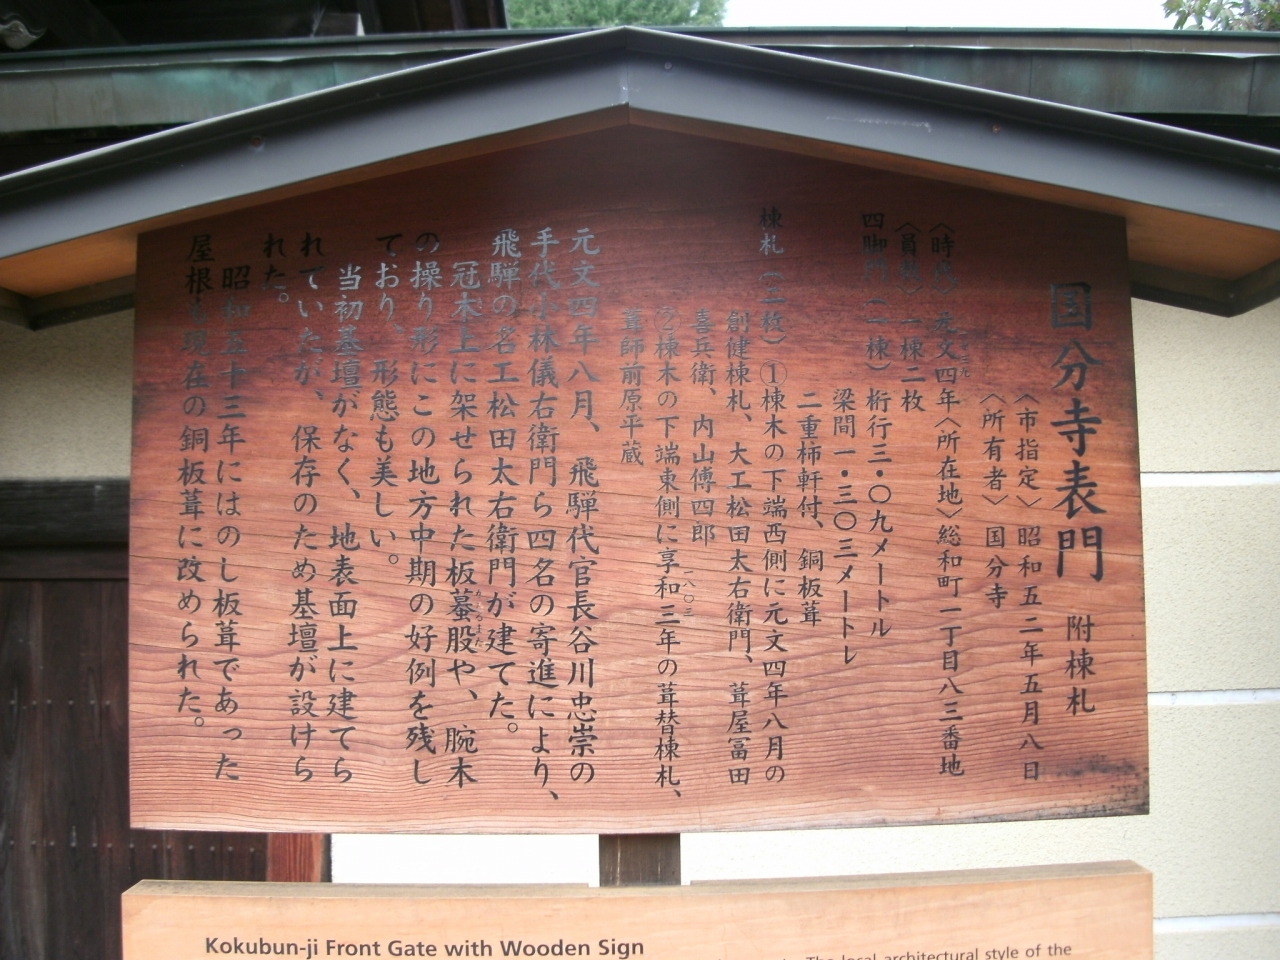 国分寺表門 附棟札
〈市指定〉昭和五二年五月八日
〈所有者〉国分寺
〈時代〉元文四年〈所在地〉総和町一丁目八三番地
〈員数〉一棟二枚
四脚門(一棟)桁行三・〇九メートル
梁間一・三〇三メートル
二重柿軒付、銅板葺
棟札(二枚)①棟木の下端西側に元文四年八月の
創健棟札、大工松田太右衛門、葺屋冨田
喜兵衛、内山傳四郎
②棟木の下端東側に享和三年の葺替棟札、
一八〇三
葺師前原平蔵
元文四年八月、飛騨代官長谷川忠崇の
手代小林儀右衛門ら四名の寄進により、
飛騨の名工松田太右衛門が建てた。
冠木上に架せられた板蟇股や、腕木
かえるまた
の操り形にこの地方中期の好例を残し
ており、形態も美しい。
当初基壇がなく、地表面上に建てら
れていたが、保存のため基壇が設けら
れた。
昭和五十三年にはのし板葺であった
屋根も現在の銅板葺に改められた。
Kokubun-ji Front Gate with Wooden Sign
The local architectural style of the